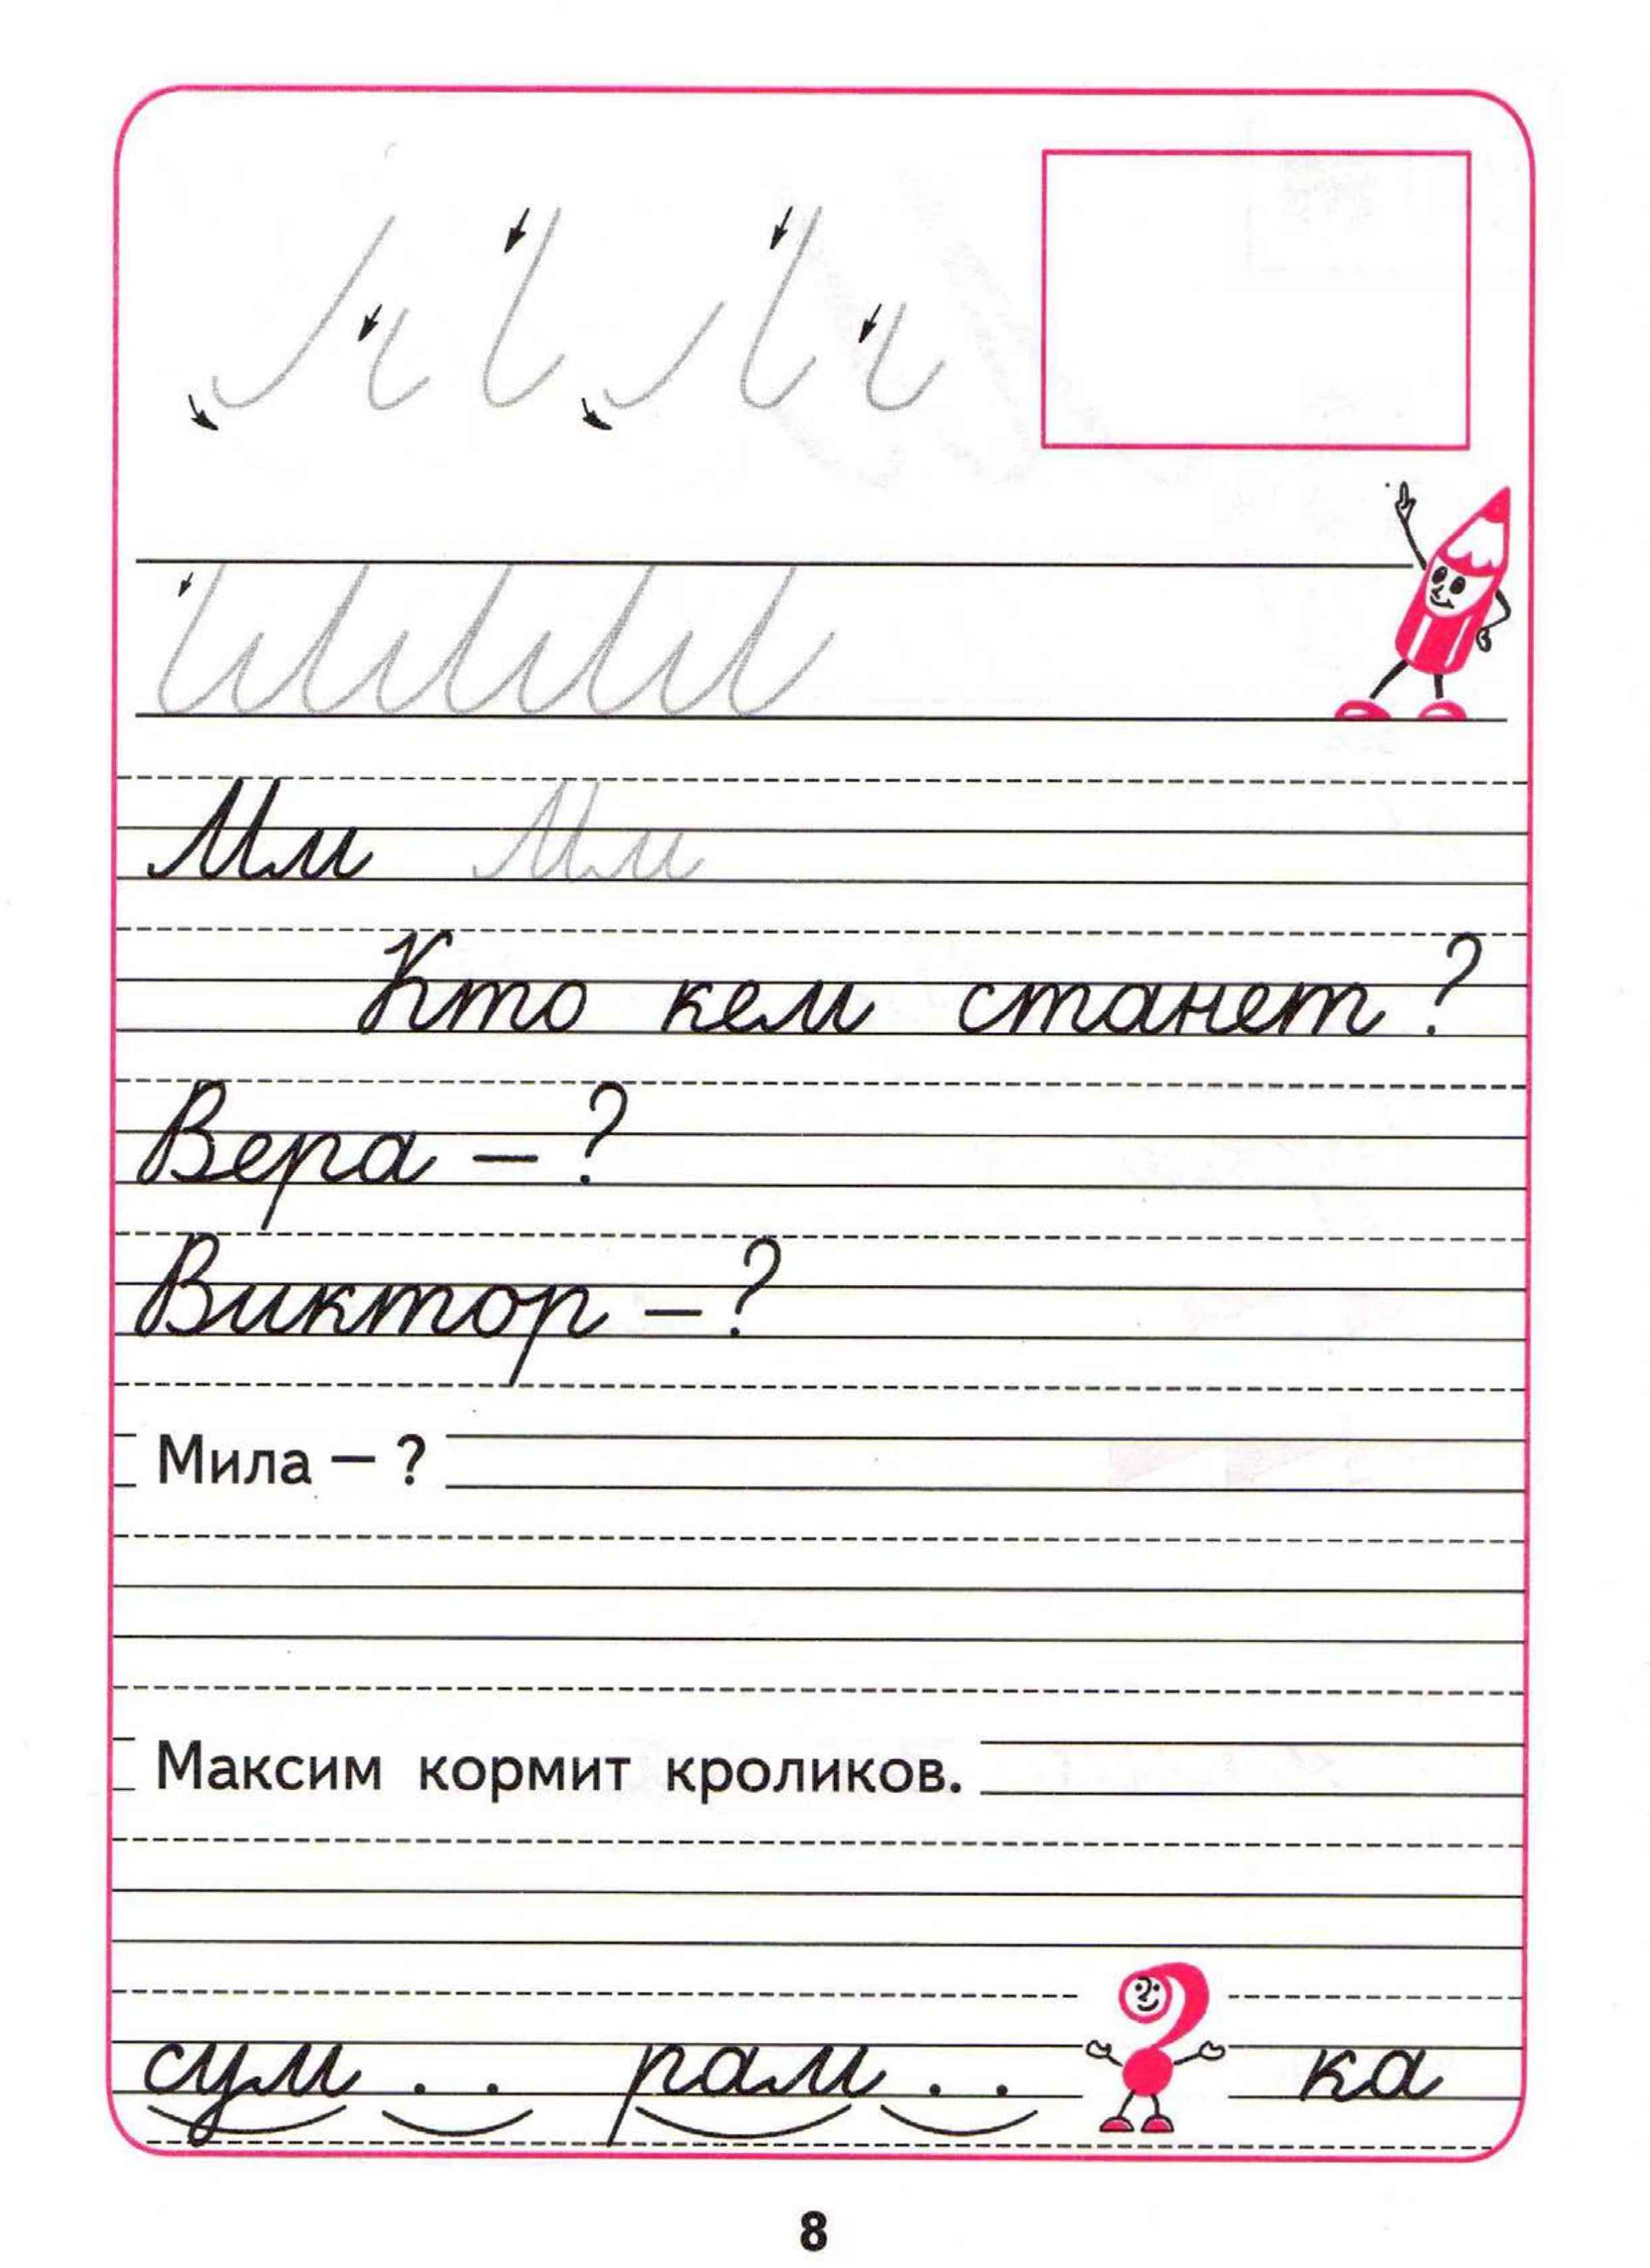 Мм Мм
Кто кем станет?
Вера – ?
Виктор – ?
Мила – ?
Максим кормит кроликов.
сум . . рам . . ка
8